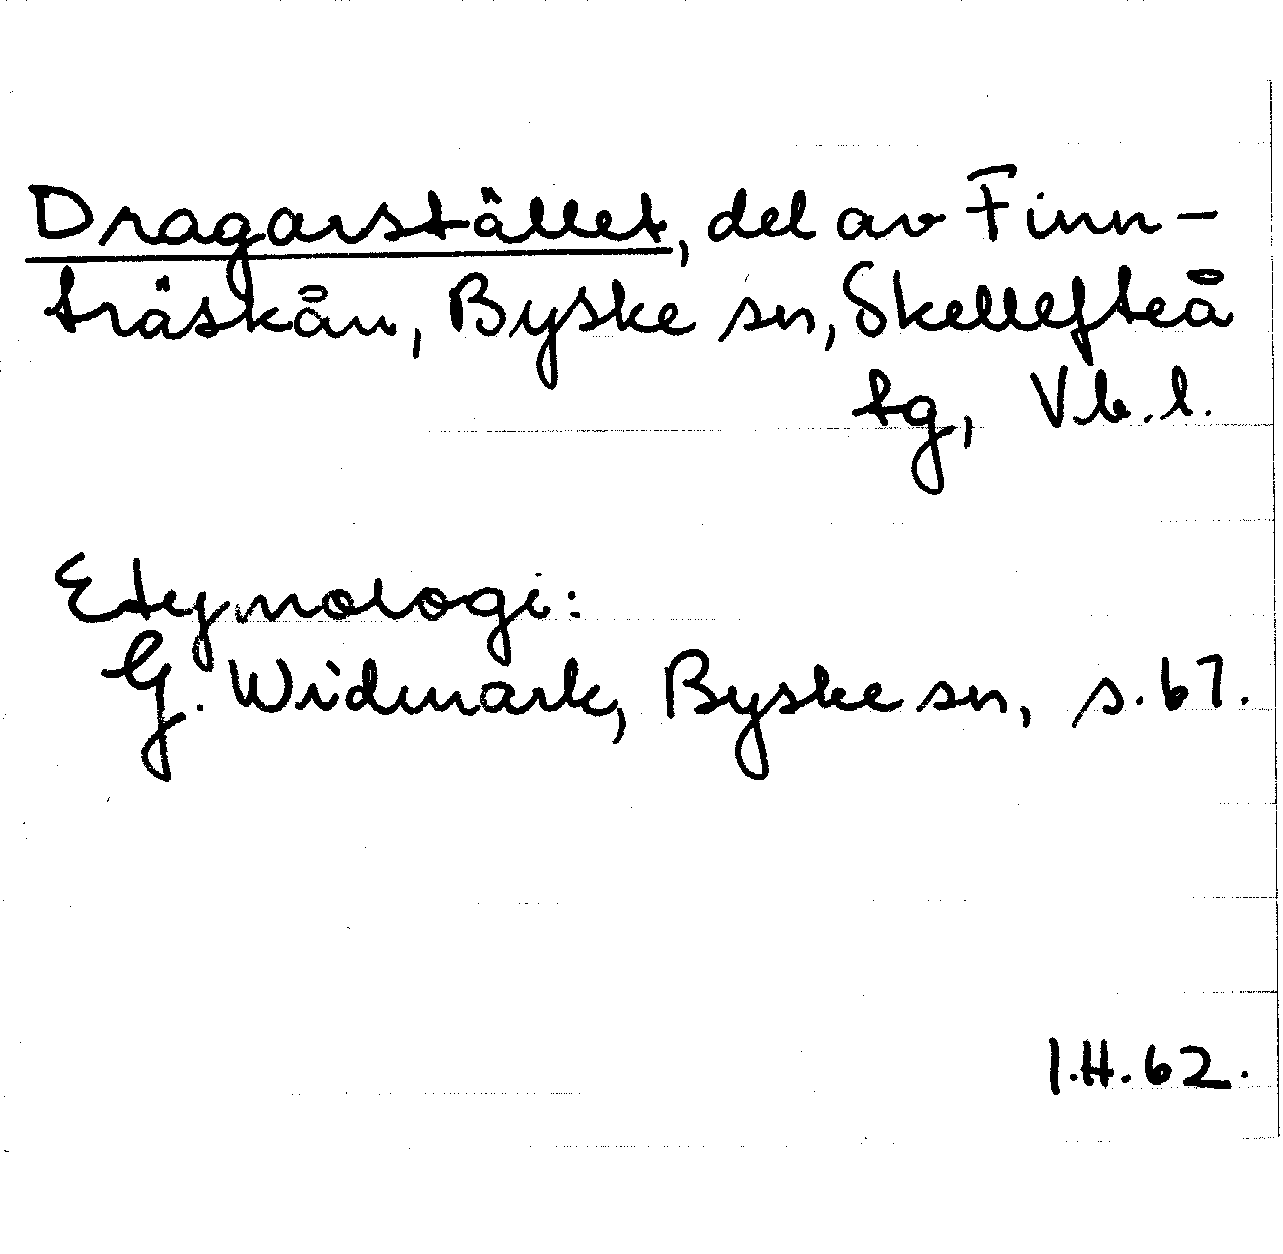 Dragarstället, del av Finn-
träskån, Byske sn, Skellefteå
tg, Vb.l.
Etymologi:
G. Widmark, Byske sn, s. 67.
I.H. 62.